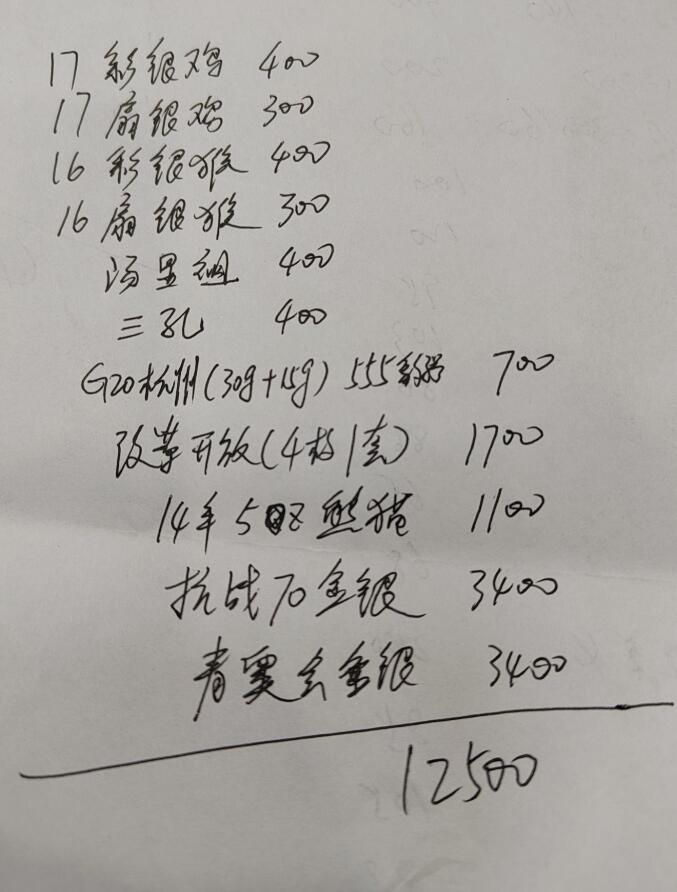 17 彩银鸡 400
17 扇银鸡 300
16 彩银猴 400
16 扇银猴 300
汤显祖 400
三孔 400
G20杭州(30g+15g) 555 700
改革开放(4枚1套) 1700
14年5oz熊猫 1100
抗战70金银 3400
青奥会金银 3400
12500